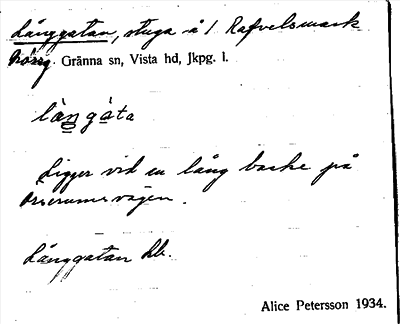 Långgatan, stuga å 1 Rafvelsmark
Norrg. Gränna sn, Vista hd, Jkpg. l.
långàta
Ligger vid en lång backe på
Örserumsvägen.
Långgatan hb.
Alice Petersson 1934.